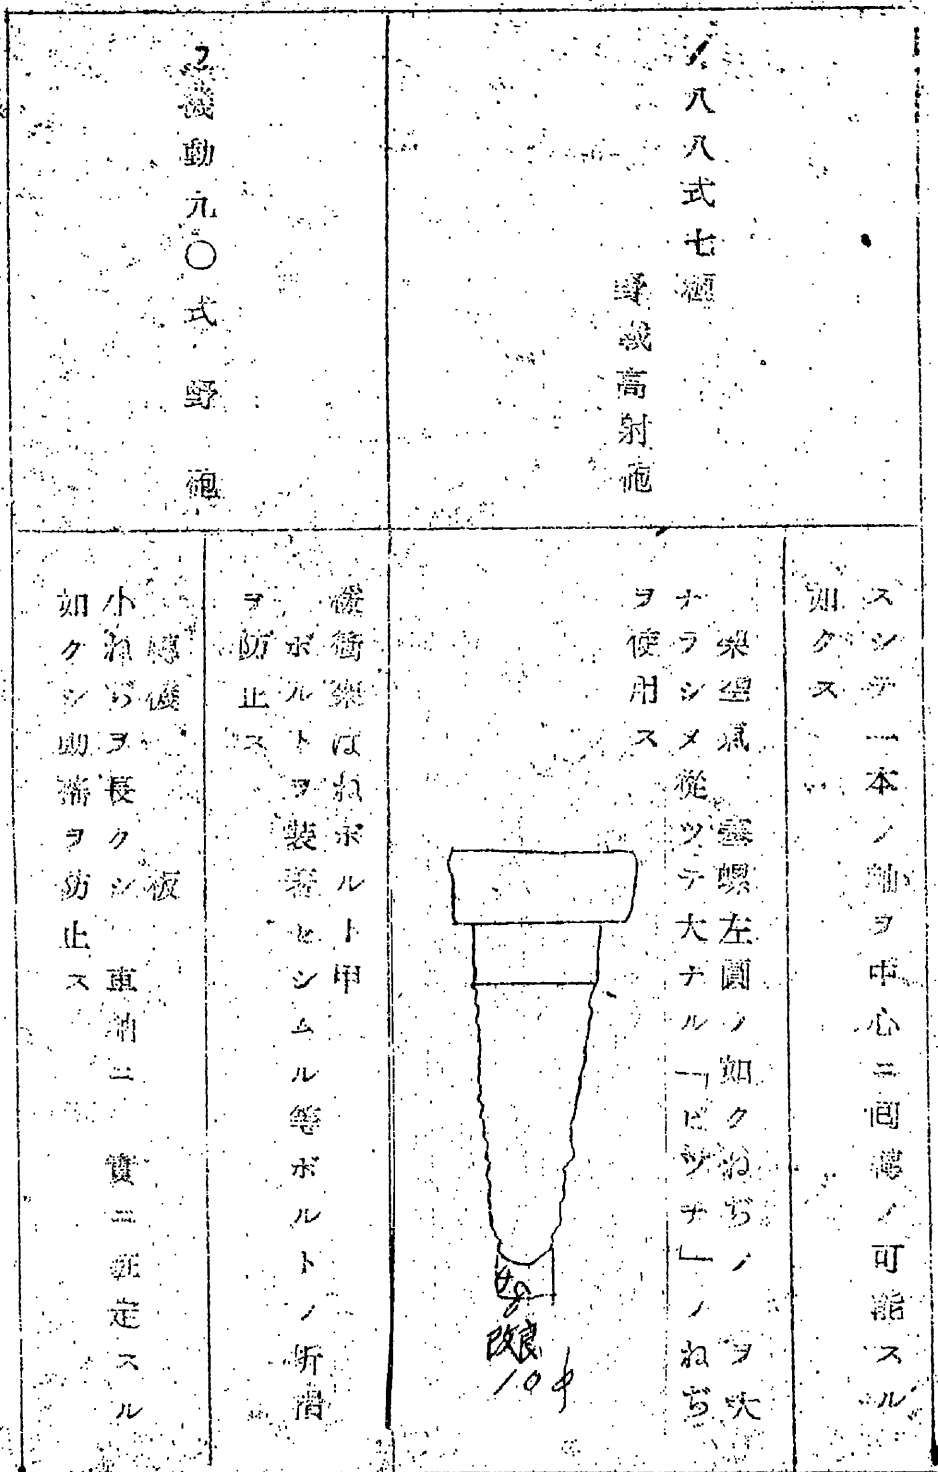 1.八八式七糎
野戰高射砲
スシテ一本ノ軸ヲ中心ニ回轉ノ可能スル
如クス
螺左圓ノ如クねぢノ ヲ大
ナラシメ從ツテ大ナル「ピツチ」ノねぢ
ヲ使用ス
改良
10φ
2機動九〇式野砲
緩衝 ばねボルト甲
ボルトヲ装著セシムル等ボルトノ折損
ヲ防止ス
轉 板
小ねぢヲ長クシ 車軸ニ 實ニ 定スル
如クシ動搖ヲ防止ス